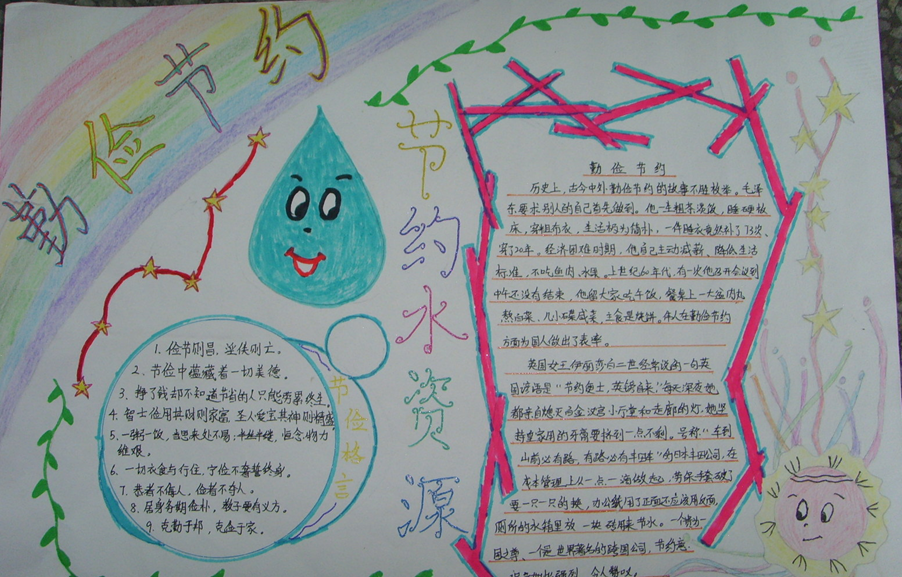 勤俭节约
节约水资源
节俭格言
1. 俭节则昌,淫佚则亡。
2. 节俭中蕴藏着一切美德。
3. 挣了钱却不知道节省的人只能劳累终生。
4. 智士俭用其财则家富 圣人爱宝其神则精盛
5. 一粥一饭,当思来处不易;半丝半缕,恒念物力
维艰。
6. 一切衣食与行住,宁俭不奢誓终身。
7. 恭者不侮人,俭者不夺人。
8. 居身务期俭朴,教子要有义方。
9. 克勤于邦,克俭于家。
勤俭节约
历史上,古今中外勤俭节约的故事不胜枚举。毛泽
东要求别人的自己首先做到。他一生粗茶淡饭,睡硬板
床,穿粗布衣,生活极为简朴,一件睡衣竟然补了73次、
穿了20年。经济困难时期,他自己主动减薪、降低生活
标准,不吃鱼肉、水果。上世纪60年代,有一次他召开会议到
中午还没有结束,他留大家吃午饭,餐桌上一大盆肉丸
熬白菜、几小碟咸菜,主食是烧饼。伟人在勤俭节约
方面为国人做出了表率。
英国女王伊丽莎白二世经常说的一句英
国谚语是"节约便士,英镑自来",每天深夜她
都亲自熄灭白金汉宫小厅堂和走廊的灯,她坚
持皇家用的牙膏要挤到一点不剩。号称"车到
山前必有路,有路必有丰田车"的日本丰田公司,在
成本管理上从一点一滴做起,劳保手套破了
要一只一只的换,办公纸用了正面还应该用反面,
厕所的水箱里放一块砖用来节水。一个贵为一
国之尊、一个是世界著名的跨国公司,节约意